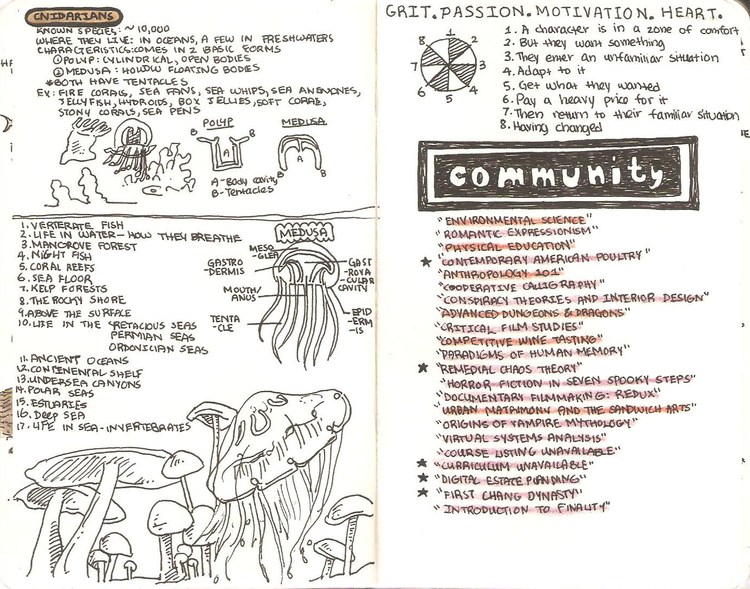 CNIDARIANS
KNOWN SPECIES: ~ 10,000
WHERE THEY LIVE: IN OCEANS, A FEW IN FRESHWATERS
CHARACTERISTICS: COMES IN 2 BASIC FORMS
① POLYP: CYLINDRICAL, OPEN BODIES
② MEDUSA: HOLLOW FLOATING BODIES
*BOTH HAVE TENTACLES
EX: FIRE CORALS, SEA FANS, SEA WHIPS, SEA ANEMONES,
JELLYFISH, HYDROIDS, BOX JELLIES, SOFT CORAL,
STONY CORALS, SEA PENS
POLYP
MEDUSA
B B
A
A
B B
A- Body cavity
B- Tentacles
1. VERTERATE FISH
2. LIFE IN WATER - HOW THEY BREATHE
3. MANGROVE FOREST
4. NIGHT FISH
5. CORAL REEFS
6. SEA FLOOR
7. KELP FORESTS
8. THE ROCKY SHORE
9. ABOVE THE SURFACE
10. LIFE IN THE CRETACIOUS SEAS
PERMIAN SEAS
ORDONICIAN SEAS
11. ANCIENT OCEANS
12. CONTINENTAL SHELF
13. UNDERSEA CANYONS
14. POLAR SEAS
15. ESTUARIES
16. DEEP SEA
17. LIFE IN SEA - INVERTEBRATES
MEDUSA
MESO-
GLEA
GASTRO
DERMIS
GAST
-ROVA
-CULAR
CAVITY
MOUTH/
ANUS
TENTA
-CLE
EPID
-ERM
-IS
GRIT. PASSION. MOTIVATION. HEART.
8 1
7 2
6 3
5 4
1. A character is in a zone of comfort
2. But they want something
3. They enter an unfamiliar situation
4. Adapt to it
5. Get what they wanted
6. Pay a heavy price for it
7. Then return to their familiar situation
8. Having changed
community
"ENVIRONMENTAL SCIENCE"
"ROMANTIC EXPRESSIONISM"
"PHYSICAL EDUCATION"
★ "CONTEMPORARY AMERICAN POULTRY"
"ANTHROPOLOGY 101"
"COOPERATIVE CALIGRAPHY"
"CONSPIRACY THEORIES AND INTERIOR DESIGN"
"ADVANCED DUNGEONS & DRAGONS"
"CRITICAL FILM STUDIES"
"COMPETITIVE WINE TASTING"
"PARADIGMS OF HUMAN MEMORY"
★ "REMEDIAL CHAOS THEORY"
"HORROR FICTION IN SEVEN SPOOKY STEPS"
"DOCUMENTARY FILMMAKING: REDUX"
"URBAN MATRIMONY AND THE SANDWICH ARTS"
"ORIGINS OF VAMPIRE MYTHOLOGY"
"VIRTUAL SYSTEMS ANALYSIS"
"COURSE LISTING UNAVAILABLE"
★ "CURRICULUM UNAVAILABLE"
★ "DIGITAL ESTATE PLANNING"
★ "FIRST CHANG DYNASTY"
"INTRODUCTION TO FINALITY"